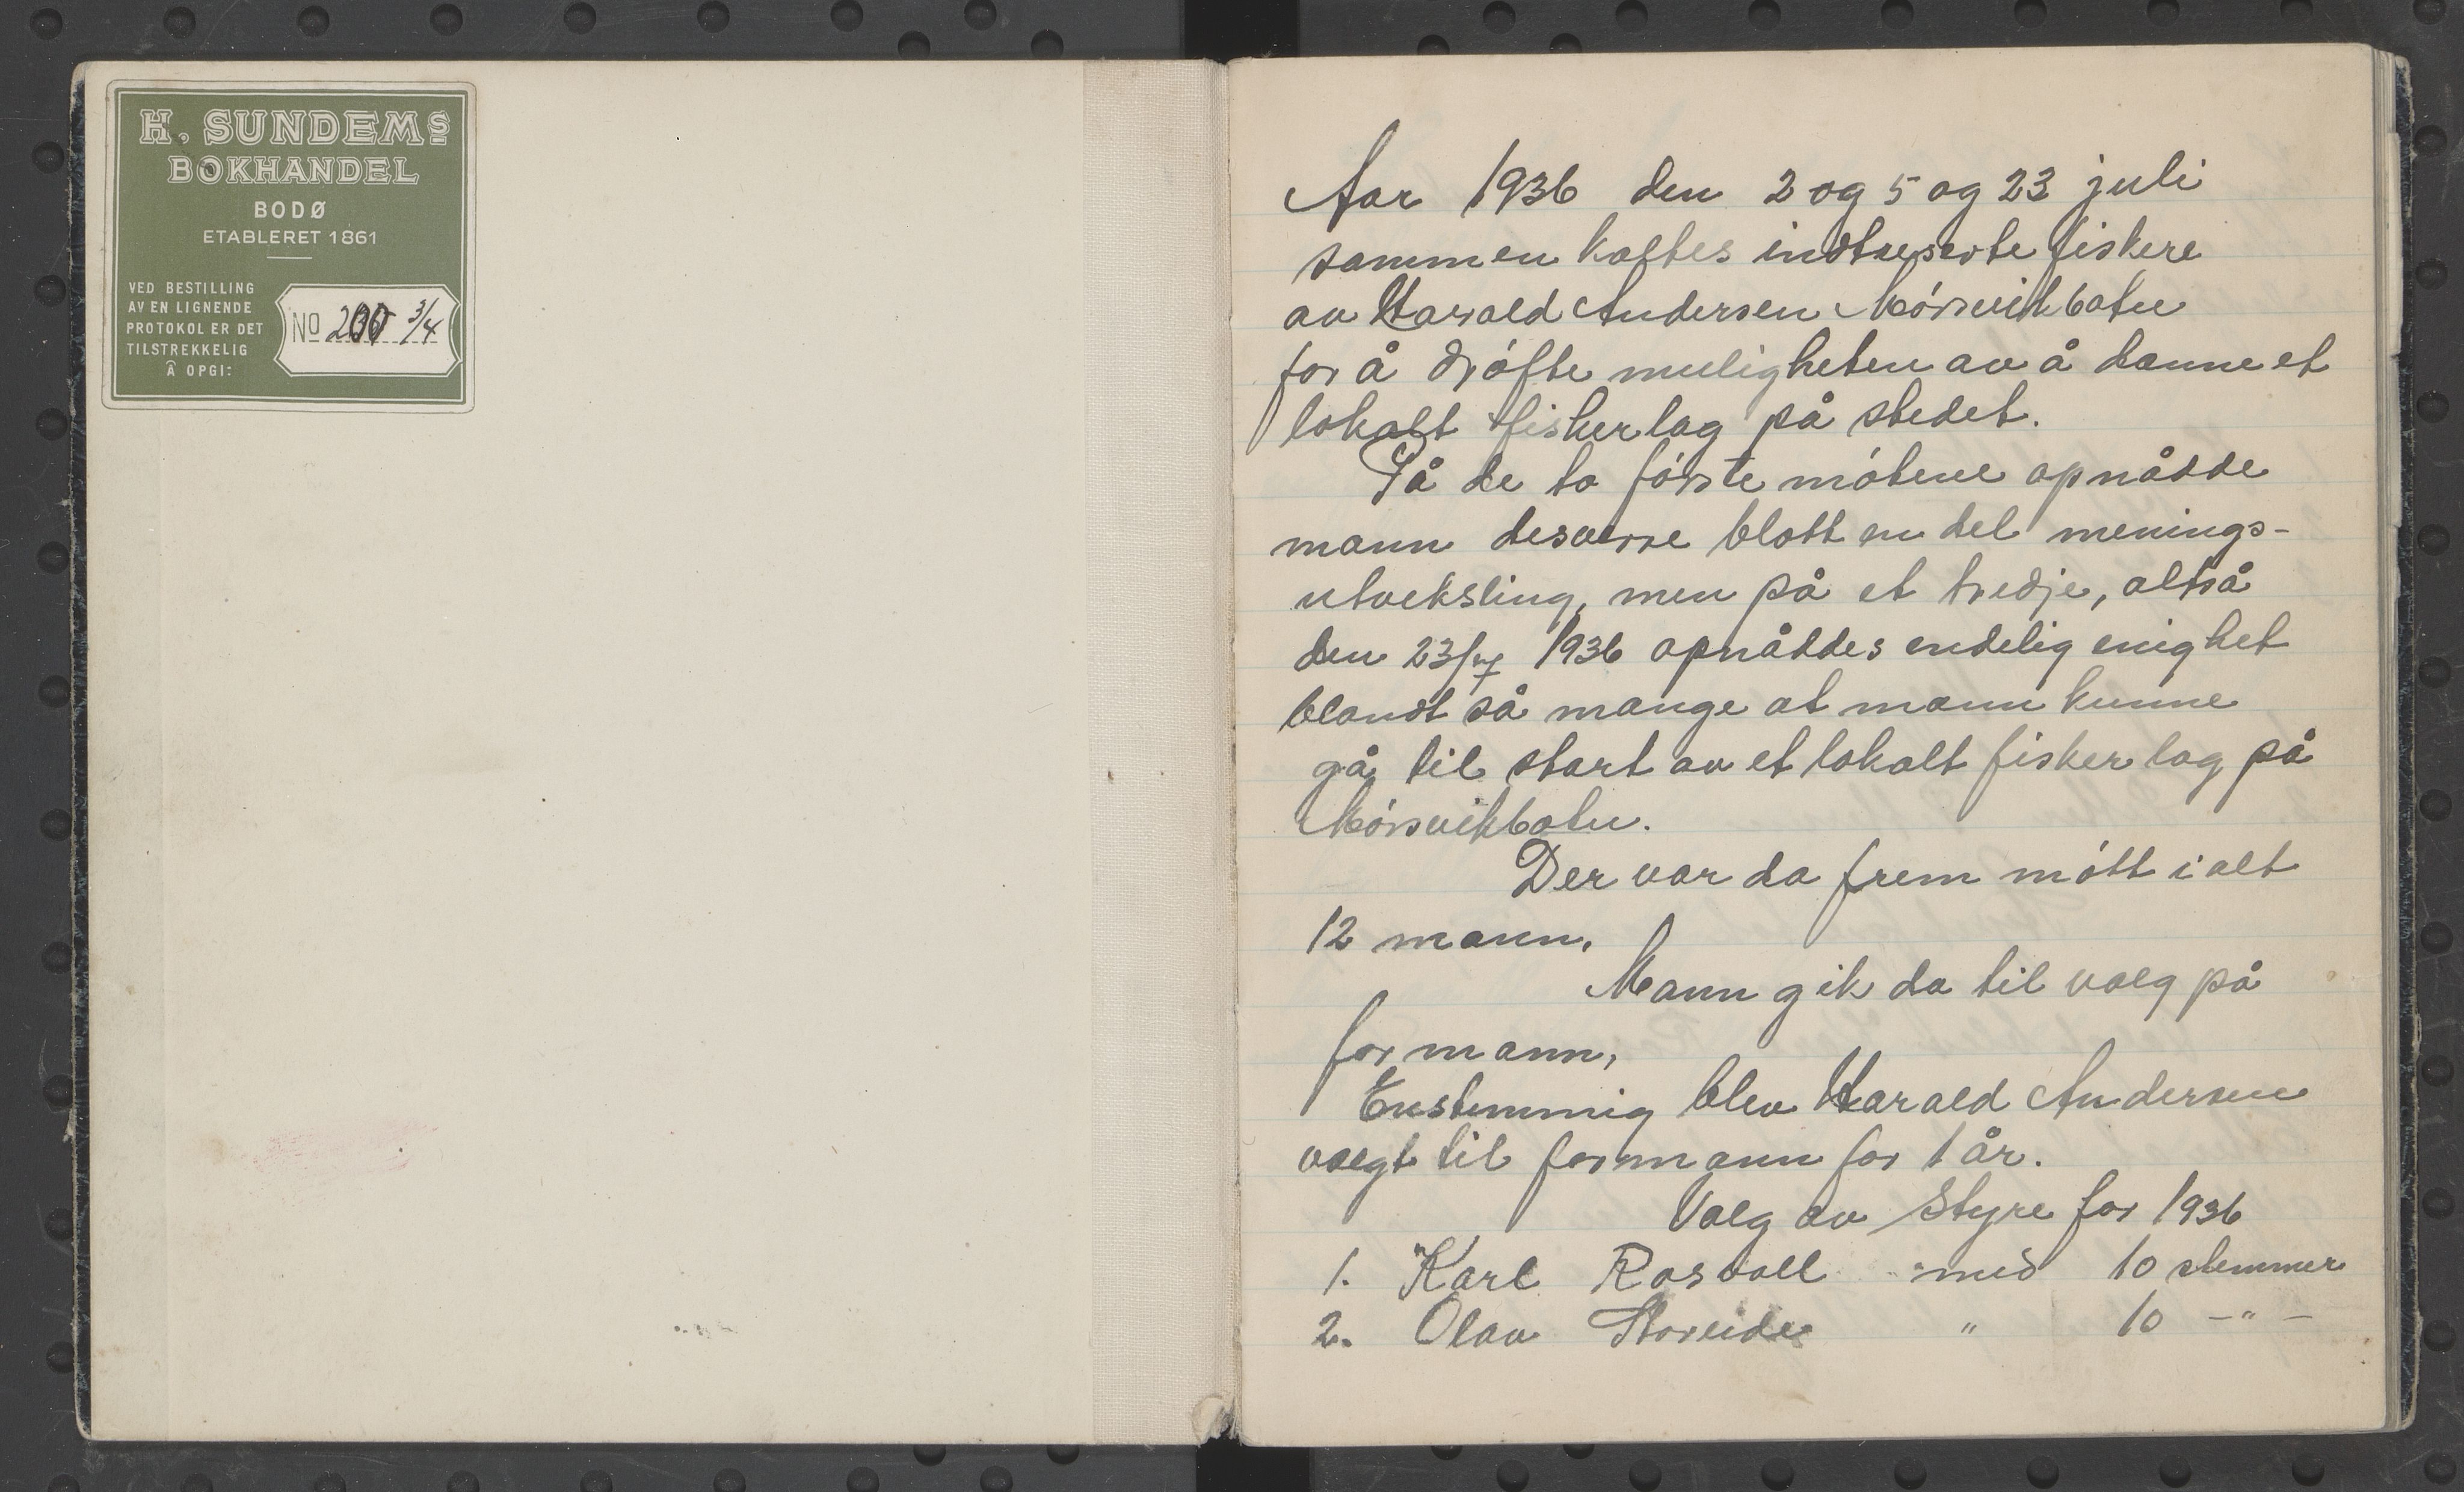 H. SUNDEMS
BOKHANDEL
BODØ
ETABLERET 1861
VED BESTILLING
AV EN LIGNENDE
PROTOKOL ER DET
TILSTREKKELIG
Å OPGI:
No 200 3/4
Aar 1936 den 2 og 5 og 23 juli
sammen kaltes indtreserte fiskere
av Harald Andersen Mórsvikbotn
for å drófte muligheten av å danne et
lokalt fiskerlag på stedet.
På de to fórste mótene opnådde
mann desverre blott en del menings-
utveksling, men på et tredje, altså
den 23/7 1936 opnåddes endelig enighet
blandt så mange at mann kunne
gå til start av et lokalt fisker lag på
Mórsvikbotn.
Der var da frem mótt i alt
12 mann.
Mann gik da til valg på
formann,
Enstemmig blev Harald Andersen
valgt til formann for 1 år.
Valg av Styre for 1936
1. Karl Rosvoll med 10 stemmer
2. Olav Storeide " 10 -"-